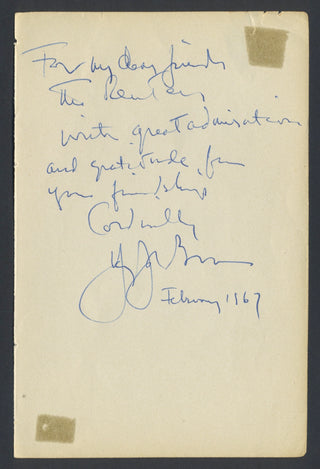 For my dear friends
The
with great admiration
and gratitude for
your friendship
Cordially
February 1967